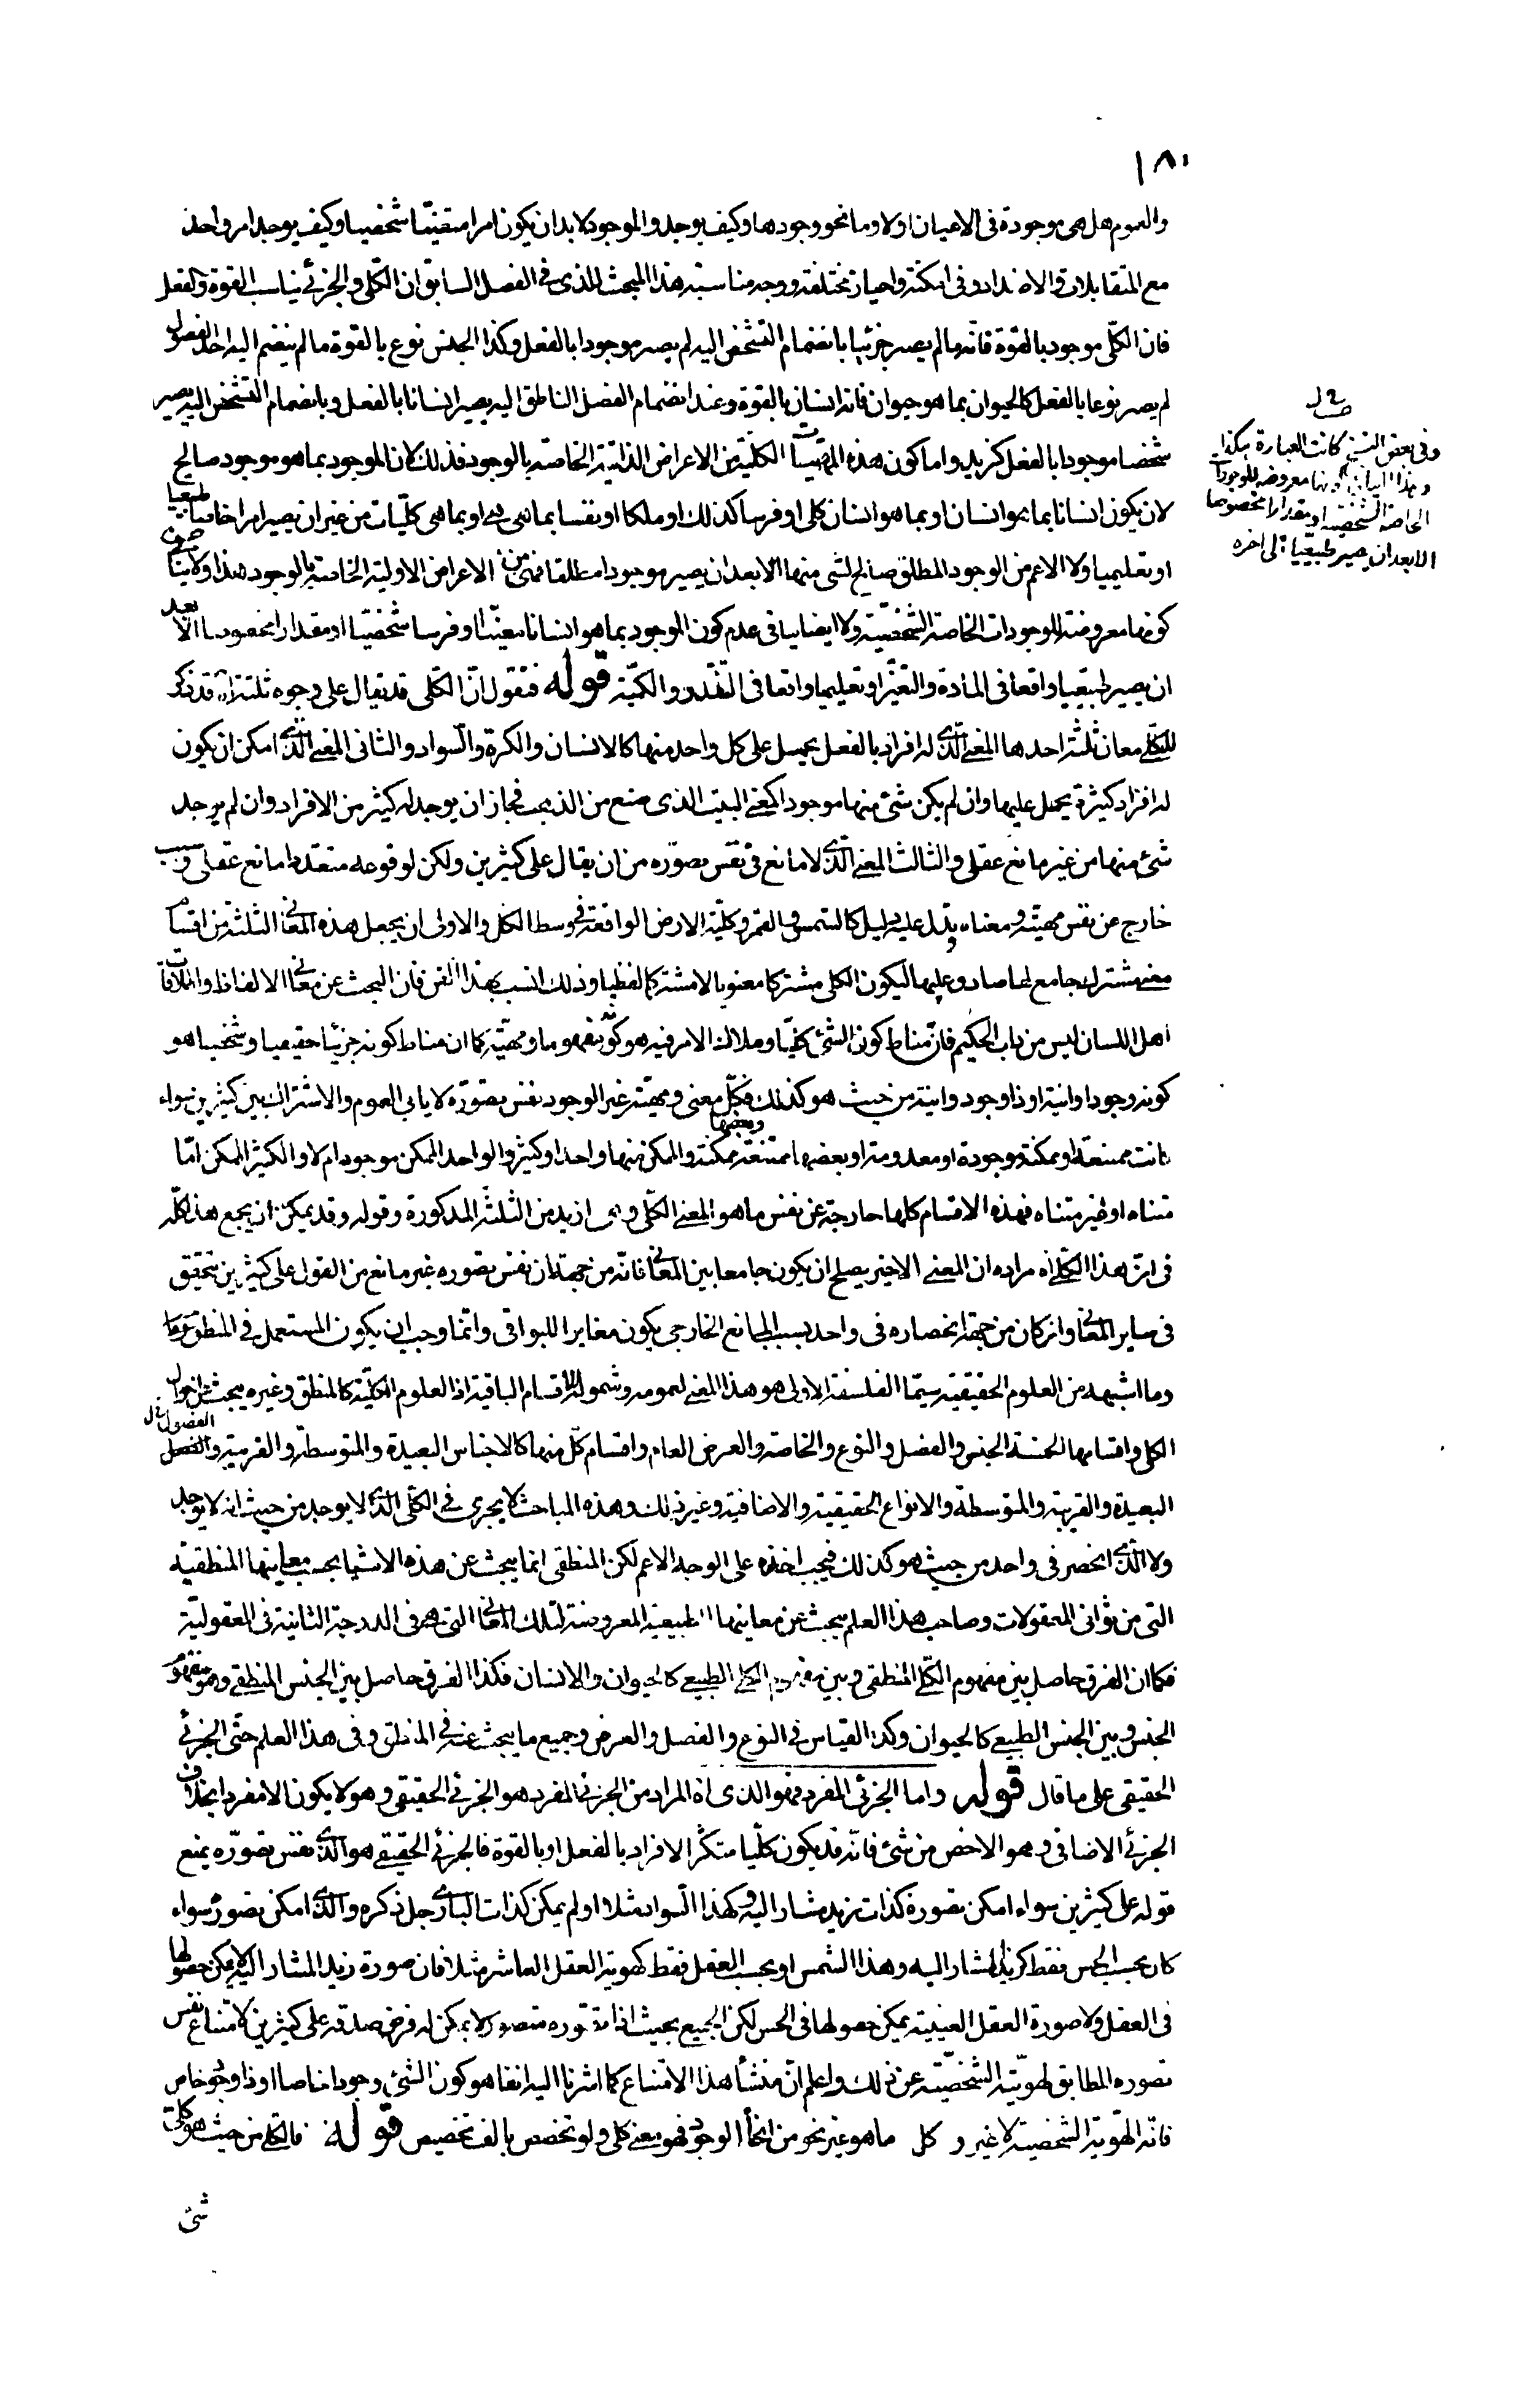 ١٨٠
والعموم هل هى موجودة فى الاعيان اولا وما نحو وجودها وكيف يوجد والموجود لابد ان يكون امرا متعينا شخصيا وكيف يوجد امر واحد
مع المتقابلات والاضداد وفى امكنة واحياز مختلفة ووجه مناسبة هذا المبحث للذى فى الفصل السابق ان الكلى والجزئى يناسب القوة والفعل
فان الكلى موجود بالقوة فانه ما لم يصر جزئيا بانضمام التشخص اليه لم يصر موجودا بالفعل وكذا الجنس نوع بالقوة ما لم ينضم اليه احد الفصول
لم يصر نوعا بالفعل كالحيوان بما هو حيوان فانه انسان بالقوة وعند انضمام الفصل الناطق اليه يصير انسانا بالفعل وبانضمام التشخص اليه يصير
شخصا موجودا بالفعل كزيد واما كون هذه المهيات الكلية من الاعراض الذاتية الخاصة بالوجود فذلك لان الموجود بما هو موجود صالح
لان يكون انسانا بما هو انسان او بما هو انسان كلى او فرسا كذلك او ملكا او نفسا بما هى هى او بما هى كليات من غير ان يصير امرا خاصا طبيعيا
او تعليميا ولا الاعم من الوجود المطلق صالح لشى منها الا بعد ان يصير موجودا مطلقا فهى من الاعراض الاولية الخاصة بالوجود هذا ولا ينافى
كونها معروضة للوجودات الخاصة الشخصية ولا ايضا ينافى عدم كون الموجود بما هو انسانا معينا او فرسا شخصيا او مقدارا مخصوصا الا بعد
ان يصير طبيعيا واقعا فى المادة والتغير او تعليميا واقعا فى التقدر والكمية قوله فنقول ان الكلى قد يقال على وجوه ثلثة اه قد ذكر
للكلى معان ثلثة احدها المعنى الذى له افراد بالفعل يحمل على كل واحد منها كالانسان والكرة والسواد والثانى المعنى الذى امكن ان يكون
له افراد كثيرة يحمل عليها وان لم يكن شئ منها موجودا كمعنى البيت الذى صنع من الذهب فجاز ان يوجد له كثير من الافراد وان لم يوجد
شئ منها من غير مانع عقلى والثالث المعنى الذى لا مانع فى نفس تصوره من ان يقال على كثيرين ولكن لوقوعه متعددا مانع عقلى وسبب
خارج عن نفس مهيته ومعناه يدل عليه دليل كالشمس والقمر وكلية الارض الواقعة فى وسط الكل والاولى ان يجعل هذه المعانى الثلثة من اقسام
معنى مشترك جامع لها صادق عليها ليكون الكلى مشتركا معنويا لا مشتركا لفظيا وذلك انسب بهذا الفن فان البحث عن معانى الالفاظ واطلاقات
اهل اللسان ليس من داب الحكيم فان مناط كون الشئ كليا وملاك الامر فيه هو كونه مفهوما ومهية كما ان مناط كونه جزئيا حقيقيا وشخصيا هو
كونه وجودا وانية او ذا وجود وانية من حيث هو كذلك فكل معنى ومهية غير الوجود نفس تصوره لا يابى العموم والاشتراك بين كثيرين سواء
كانت ممتنعة او ممكنة موجودة او معدومة او بعضها ممتنعة وبعضها ممكنة والممكن منها واحدا او كثير والواحد الممكن موجود ام لا والكثير الممكن اما
متناه او غير متناه فهذه الاقسام كلها خارجة عن نفس ما هو المعنى الكلى وهى ازيد من الثلثة المذكورة وقوله وقد يمكن ان يجمع هذا كله
فى ان هذا الكلى اه مراده ان المعنى الاخير يصلح ان يكون جامعا بين المعانى فانه من جهة ان نفس تصوره غير مانع من القول على كثيرين يتحقق
فى ساير المعانى وان كان من جهة انحصاره فى واحد بسبب المانع الخارجى يكون مغايرا للبواقى وانما وجب ان يكون المستعمل فى المنطق
وما اشبهه من العلوم الحقيقية سيما الفلسفة الاولى هو هذا المعنى لعمومه وشموله للاقسام الباقية اذ العلوم الكلية كالمنطق وغيره يبحث عن احوال
الكلى واقسامها الخمسة الجنس والفصل والنوع والخاصة والعرض العام واقسام كل منها كالاجناس البعيدة والمتوسطة والقريبة والفصول
البعيدة والقريبة والمتوسطة والانواع الحقيقية والاضافية وغير ذلك وهذه المباحث لا يجرى فى الكلى الذى لا يوجد من حيث انه لا يوجد
ولا الذى انحصر فى واحد من حيث هو كذلك فيجب اخذه على الوجه الاعم لكن المنطقى انما يبحث عن هذه الاشيا بحسب معانيها المنطقية
التى من ثوانى المعقولات وصاحب هذا العلم يبحث عن معانيها الطبيعية المعروضة لتلك المعانى التى هى فى الدرجة الثانية فى المعقولية
فكما ان الفرق حاصل بين مفهوم الكلى المنطقى وبين مفهوم الكلى الطبيعى كالحيوان والانسان فكذا الفرق حاصل بين الجنس المنطقى وهو مفهوم
الجنس وبين الجنس الطبيعى كالحيوان وكذا القياس فى النوع والفصل والعرض وجميع ما يبحث عنه فى المنطق وفى هذا العلم حتى الجزئى
الحقيقى على ما قال قوله واما الجزئى المفرد فهو الذى اه المراد من الجزئى المفرد هو الجزئى الحقيقى وهو لا يكون الا مفردا بخلاف
الجزئى الاضافى وهو الاخص من شئ فانه قد يكون كليا متكثر الافراد بالفعل او بالقوة فالجزئى الحقيقى هو الذى نفس تصوره يمنع
قوله على كثيرين سواء امكن تصوره كذات زيد مشار اليه وكهذا السواد مثلا او لم يمكن كذات البارى جل ذكره والذى امكن تصوره سواء
كان بحسب الحس فقط كزيد المشار اليه وهذا الشمس او بحسب العقل فقط كهوية العقل العاشر مثلا فان صورة زيد المشار اليه لا يمكن حصولها
فى العقل ولا صورة العقل العينية يمكن حصولها فى الحس لكن الجميع بحيث اذا تصوره متصور لا يمكن له فرض صدقه على كثيرين لامتناع نفس
تصوره المطابق لهويته الشخصية عن ذلك واعلم ان منشأ هذا الامتناع كما اشرنا اليه انفا هو كون الشئ وجودا خاصا او ذا وجود خاص
فانه الهوية الشخصية لا غير وكل ما هو غير نحو من انحا الوجود فهو معنى كلى ولو تخصص بالف تخصيص قوله فالكلى من حيث هو كلى
شئ
وفى بعض النسخ كانت العبارة هكذا
وهذا لاينافى كونها معروضة للوجودات
الخاصة الشخصية او مقدارا مخصوصا
الا بعد ان يصير طبيعيا الى اخره